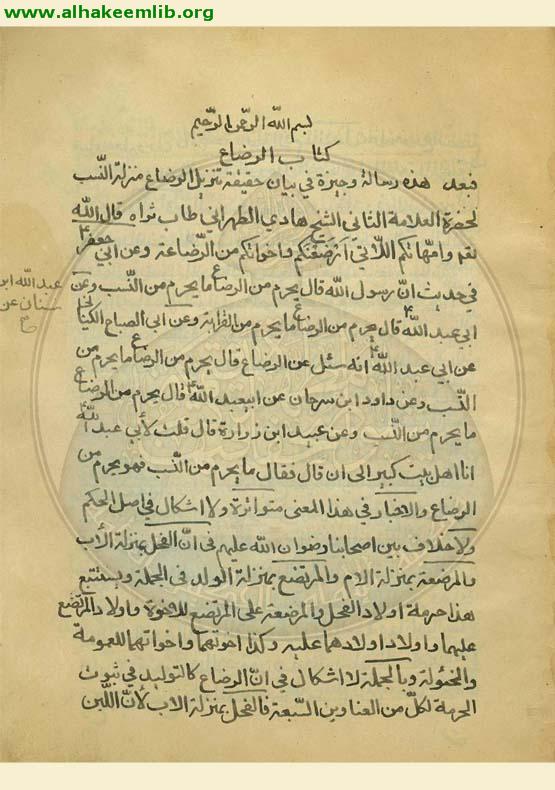 www.alhakeemlib.org
بسم الله الرحمن الرحيم
كتاب الرضاع
فبعد هذه رسالة وجيزة في بيان حقيقة تنزيل الرضاع منزلة النسب
لحضرة العلامة الثاني الشيخ هادي الطهراني طاب ثراه قال الله
تعم وامهاتكم اللاتي ارضعنكم واخواتكم من الرضاعة وعن ابي جعفر ع
في حديث ان رسول الله قال يحرم من الرضاع ما يحرم من النسب وعن
عبدالله ابن
سنان عن
صح
ابي عبد الله ع قال يحرم من الرضاع ما يحرم من القرابة وعن ابي الصباح الكناني
عن ابي عبد الله ع انه سئل عن الرضاع قال يحرم من الرضاع ما يحرم من
النسب وعن داود ابن سرحان عن ابيعبد الله ع قال يحرم من الرضاع
ما يحرم من النسب وعن عبيد ابن زرارة قال قلت لأبي عبد الله ع
انا اهل بيت كبير الى ان قال فقال ما يحرم من النسب فهو يحرم من
الرضاع والاخبار في هذا المعنى متواترة ولا اشكال في اصل الحكم
ولا خلاف بين اصحابنا رضوان الله عليهم في ان الفحل بمنزلة الأب
والمرضعة بمنزلة الام والمرتضع بمنزلة الولد في الجملة ويستتبع
هذا حرمة اولاد الفحل والمرضعة على المرتضع للاخوة واولاد المرتضع
عليهما واولاد اولادهما عليه وكذا اخوتهما واخواتهما للعمومة
والخئولة وبالجملة لا اشكال في ان الرضاع كالتوليد في ثبوت
الحرمة لكل من العناوين السبعة فالفحل بمنزلة الاب لأن اللبن